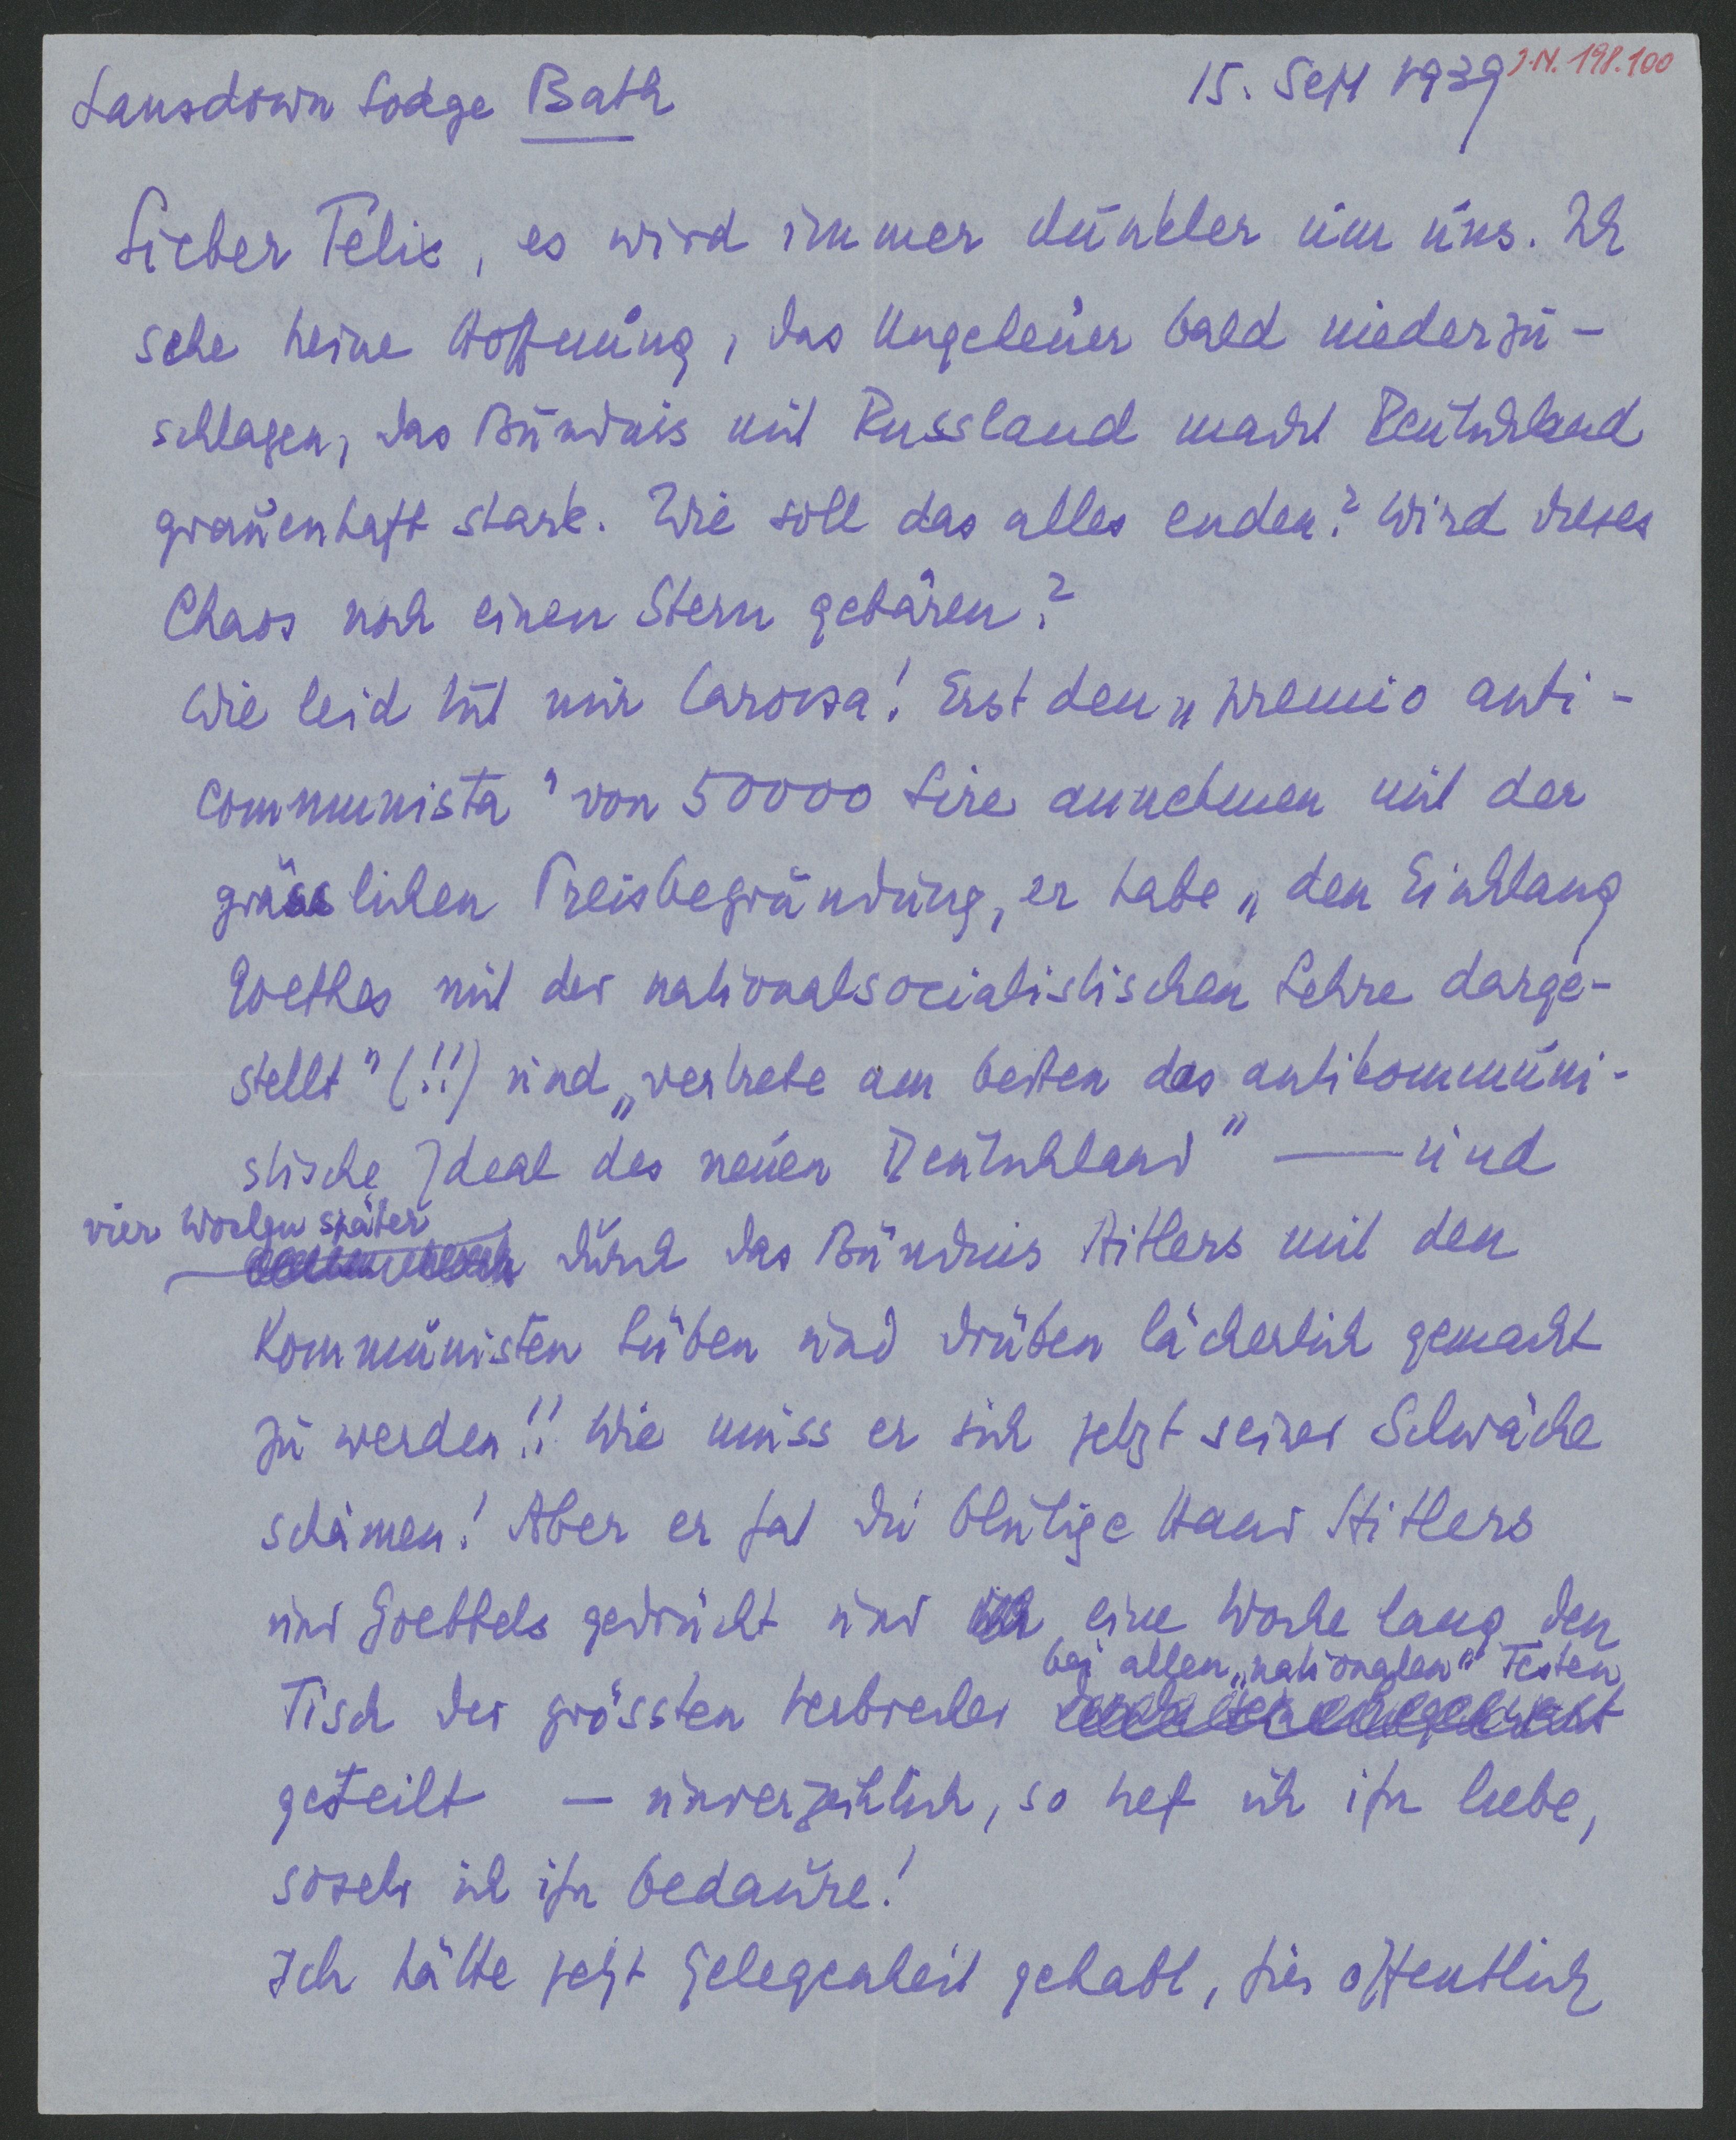 Lansdown Lodge Bath
15. Sept 1939
J.N. 198.100
Lieber Felix, es wird immer dunkler um uns. Ich
sehe keine Hoffnung, das Ungeheuer bald niederzu-
schlagen, das Bündnis mit Russland macht Deutschland
grauenhaft stark. Wie soll das alles enden? Wird dieses
Chaos noch einen Stern gebären?
Wie leid tut mir Carossa! Erst den „premio anti-
communista" von 50000 Lire annehmen mit der
grässlichen Preisbegründung, er habe „den Einklang
Goethes mit der nationalsocialistischen Lehre darge-
stellt" (!!) und „vertrete am besten das antikommuni-
stische Ideal des neuen Deutschland" — und
vier Wochen später
durch das Bündnis Hitlers mit den
Kommunisten hüben und drüben lächerlich gemacht
zu werden!! Wie muss er sich jetzt seiner Schwäche
schämen! Aber er hat die blutige Hand Hitlers
und Goebbels gedrückt und eine Woche lang den
bei allen „nationalen" Festen
Tisch der grössten Verbrecher
geteilt — unverzeihlich, so tief ich ihn liebe,
sosehr ich ihn bedaure!
Ich hätte jetzt Gelegenheit gehabt, hier öffentlich